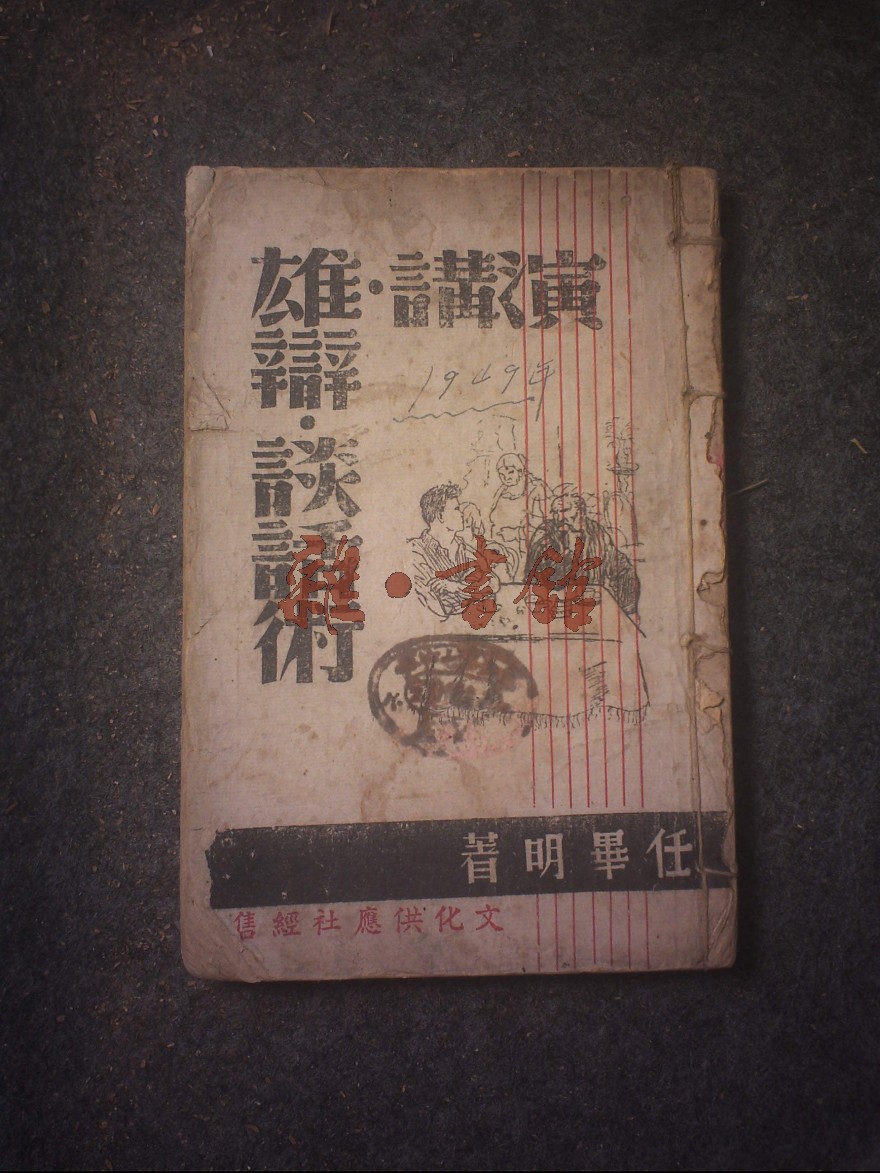 演講·雄辯·談話術
1949年
雜·書館
任畢明著
文化供應社經售